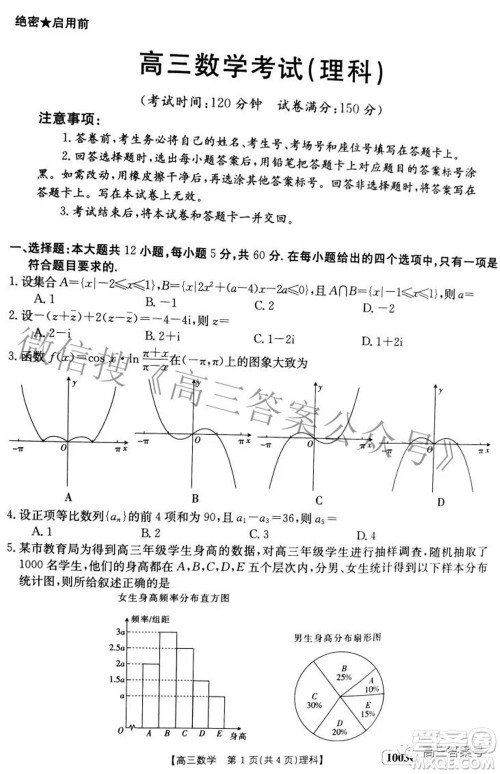 绝密★启用前
高三数学考试(理科)
(考试时间:120分钟 试卷满分:150分)
注意事项:
1. 答卷前,考生务必将自己的姓名、考生号、考场号和座位号填写在答题卡上。
2. 回答选择题时,选出每小题答案后,用铅笔把答题卡上对应题目的答案标号涂
黑。如需改动,用橡皮擦干净后,再选涂其他答案标号。回答非选择题时,将答案写在
答题卡上。写在本试卷上无效。
3. 考试结束后,将本试卷和答题卡一并交回。
一、选择题:本大题共 12 小题,每小题 5 分,共 60 分. 在每小题给出的四个选项中,只有一项是
符合题目要求的.
1. 设集合 A={x|-2≤x≤1},B={x|2x²+(a-4)x-2a≤0},且 A∩B={x|-1≤x≤1},则 a=
A. 1 B. -1 C. 2 D. -2
2. 设-(z+z̄)+2(z-z̄)=-4-4i,则 z=
A. 2-i B. 2+i C. 1-2i D. 1+2i
3. 函数 f(x)=cos x·ln (π+x)/(π-x) 在(-π,π)上的图象大致为
y y y y
-π O π x -π O π x -π O π x -π O π x
A B C D
4. 设正项等比数列{aₙ}的前 4 项和为 90,且 a₁-a₃=36,则 a₅=
A. 1 B. 2 C. 3 D. 4
5. 某市教育局为得到高三年级学生身高的数据,对高三年级学生进行抽样调查,随机抽取了
1000 名学生,他们的身高都在 A,B,C,D,E 五个层次内,分男、女生统计得到以下样本分布
统计图,则所给叙述正确的是
女生身高频率分布直方图
频率/组距
3a
2.5a
2a
1.5a
a
O A B C D E 身高
男生身高分布扇形图
B 25%
A 10%
E 15%
D 20%
C 30%
【高三数学 第 1 页(共 4 页)理科】
微信搜《高三答案公众号》
高三答案号